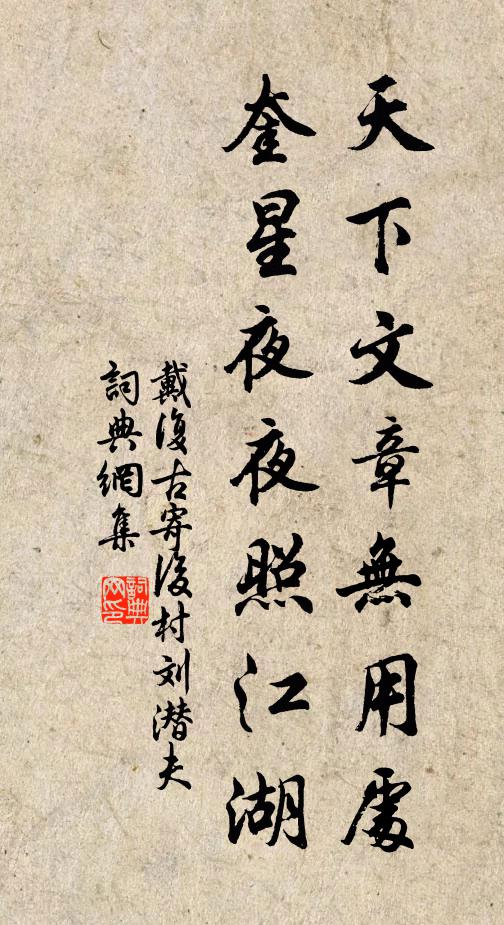 天下文章無用處
奎星夜夜照江湖
戴復古寄後村刘潜夫
詞典網集
詞典網印